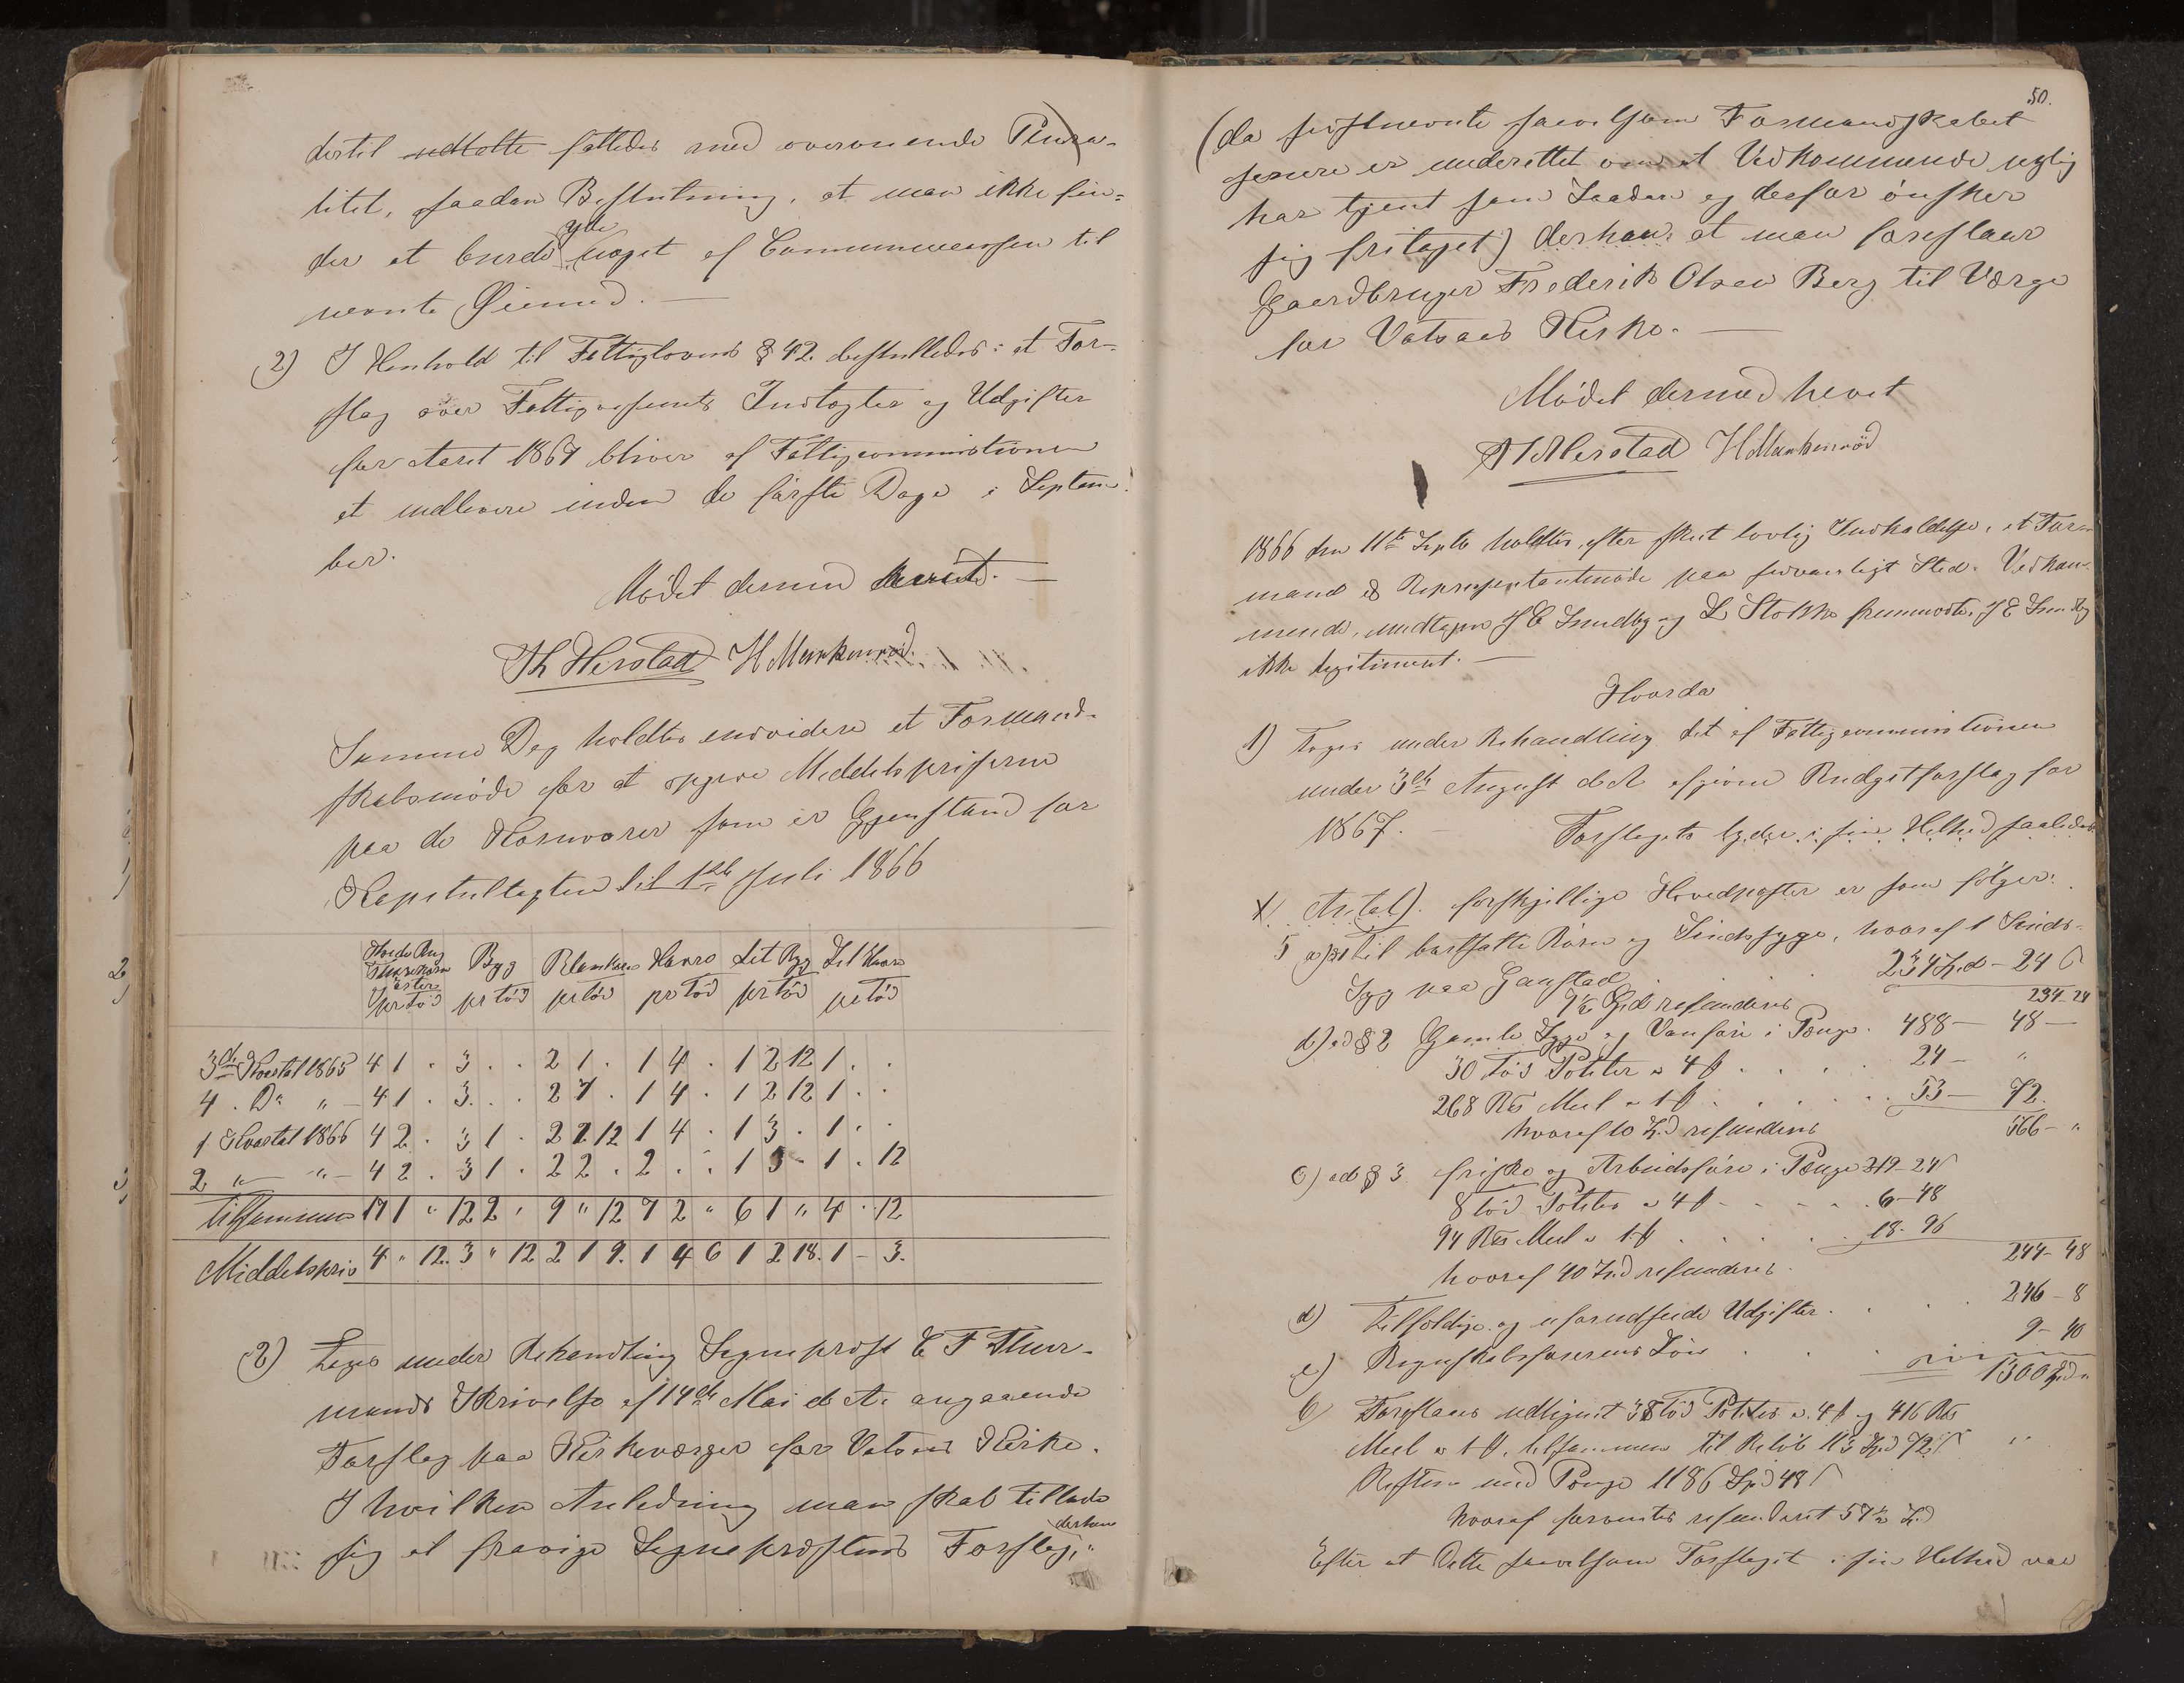 dertil udtalte fattedes med overveiende Plura-
litet, saadan Beslutning, at man ikke fin-
yde
der at burde noget af Communecassen til
nevnte Øiemed. —
2) I Henhold til Fattiglovens § 42. besluttedes: at For-
slag over Fattigvesenets Indtægter og Udgifter
for Aaret 1867 bliver af Fattigcommistionen
at indlevere inden de første Dage i Septem-
ber.
Mødet dermed hævet. —
Th Herstad H Munkerød.
Samme Dag holdtes endvidere et Formand-
skabsmøde for at opgive Middelspriserne
paa de Kornvarer som er Gjenstand for
Kapitultagten til 1ste Juli 1866
Byg Blankorn Havre Let Byg Let Havre
pr tød pr tød pr tød pr tød pr tød pr tød
3de Kvartal 1865 4 1 . 3 . . 2 1 . 1 4 . 1 2 12 1 . .
4. Do " — 4 1 . 3 . . 2 1 . 1 4 . 1 2 12 1 . .
1 Kvartal 1866 4 2 . 3 1 . 2 2 12 1 4 . 1 3 . 1 . .
2 " — " — 4 2 . 3 1 . 2 2 . 2 . . 1 3 - 1 . 12
tilsammen 17 1 " 12 2 " 9 " 12 7 2 " 6 1 " 4 . 12
Middelspris 4 " 12. 3 " 12 2 1 9. 1 4 6 1 2 18. 1 - 3.
2) toges under Behandling Sogneprost C F Thur-
manns Skrivelse af 14de Mai d. A. angaaende
Forslag paa Kirkeværger for Vatsaas Kirke.
I hvilken Anledning man skal tillade
derhen
sig at fravige Sogneprostens Forslag,
50.
(da sidstnevnte saavelsom Formandskabet
senere er underettet om at Vedkommende nylig
har tjent som Saadan og derfor ønsker
sig fritaget) derhen: at man foreslaar
Gaardbruger Frederik Olsen Berg til Værge
for Vatsaas Kirke. —
Mødet dermed hevet
Th Herstad H Munkerød
1866 den 11te Septb holdtes, efter skeet lovlig Indkaldelse, et For-
mand & Representantmøde paa sedvanligt Sted. Vedkom-
mende, undtagen J E Sundby og L Stokke fremmødte. J E Sundby
ikke legitimeret. —
Hvorda
1) Toges under Behandling det af Fattigcommistionen
under 3de August d. A afgivne Budgetforslag for
1867. — Forslagets lyder i sin Helhed saaledes
forskjellige Hovedposter er som følger:
til bortsatte Børn og Sindssyge, hvoraf 1 Sinds-
syg paa Gaustad 234 Spd - 24 ß
7½ Spd refunderes 234 - 24
b) ad § 2 Gamle Syge og Vanføre i Penge. 488 — 48 —
30 tød Poteter a 4 ß . . . . 24 — "
268 Bd Meel a 1 ß . . . . . 53 — 72.
hvoraf 10 Spd refunderes 566 — "
c) ad § 3 friske og Arbeidsføre i Penge 219 - 24 ß
8 tød Poteter a 4 ß — . . . 6 - 48
94 Bd Meel a 1 ß . . . . 18 - 96
hvoraf 40 Spd refunderes. 244 - 48
d) Tilfeldige og uforudseede Udgifter. . . . 246 - 8
e) Regnskabsførerens Løn . . . 9 - 40
1300 Spd "
6) Foreslaaes udlignet 38 tød Poteter a 4 ß og 416 Bd
Meel a 1 ß, tilsammen til Beløb 113 Spd 72 ß "
Resten med Penge 1186 Spd 48 ß
hvoraf forventes refunderet 57½ Spd
Efter at Dette saavelsom Forslaget i sin Helhed var